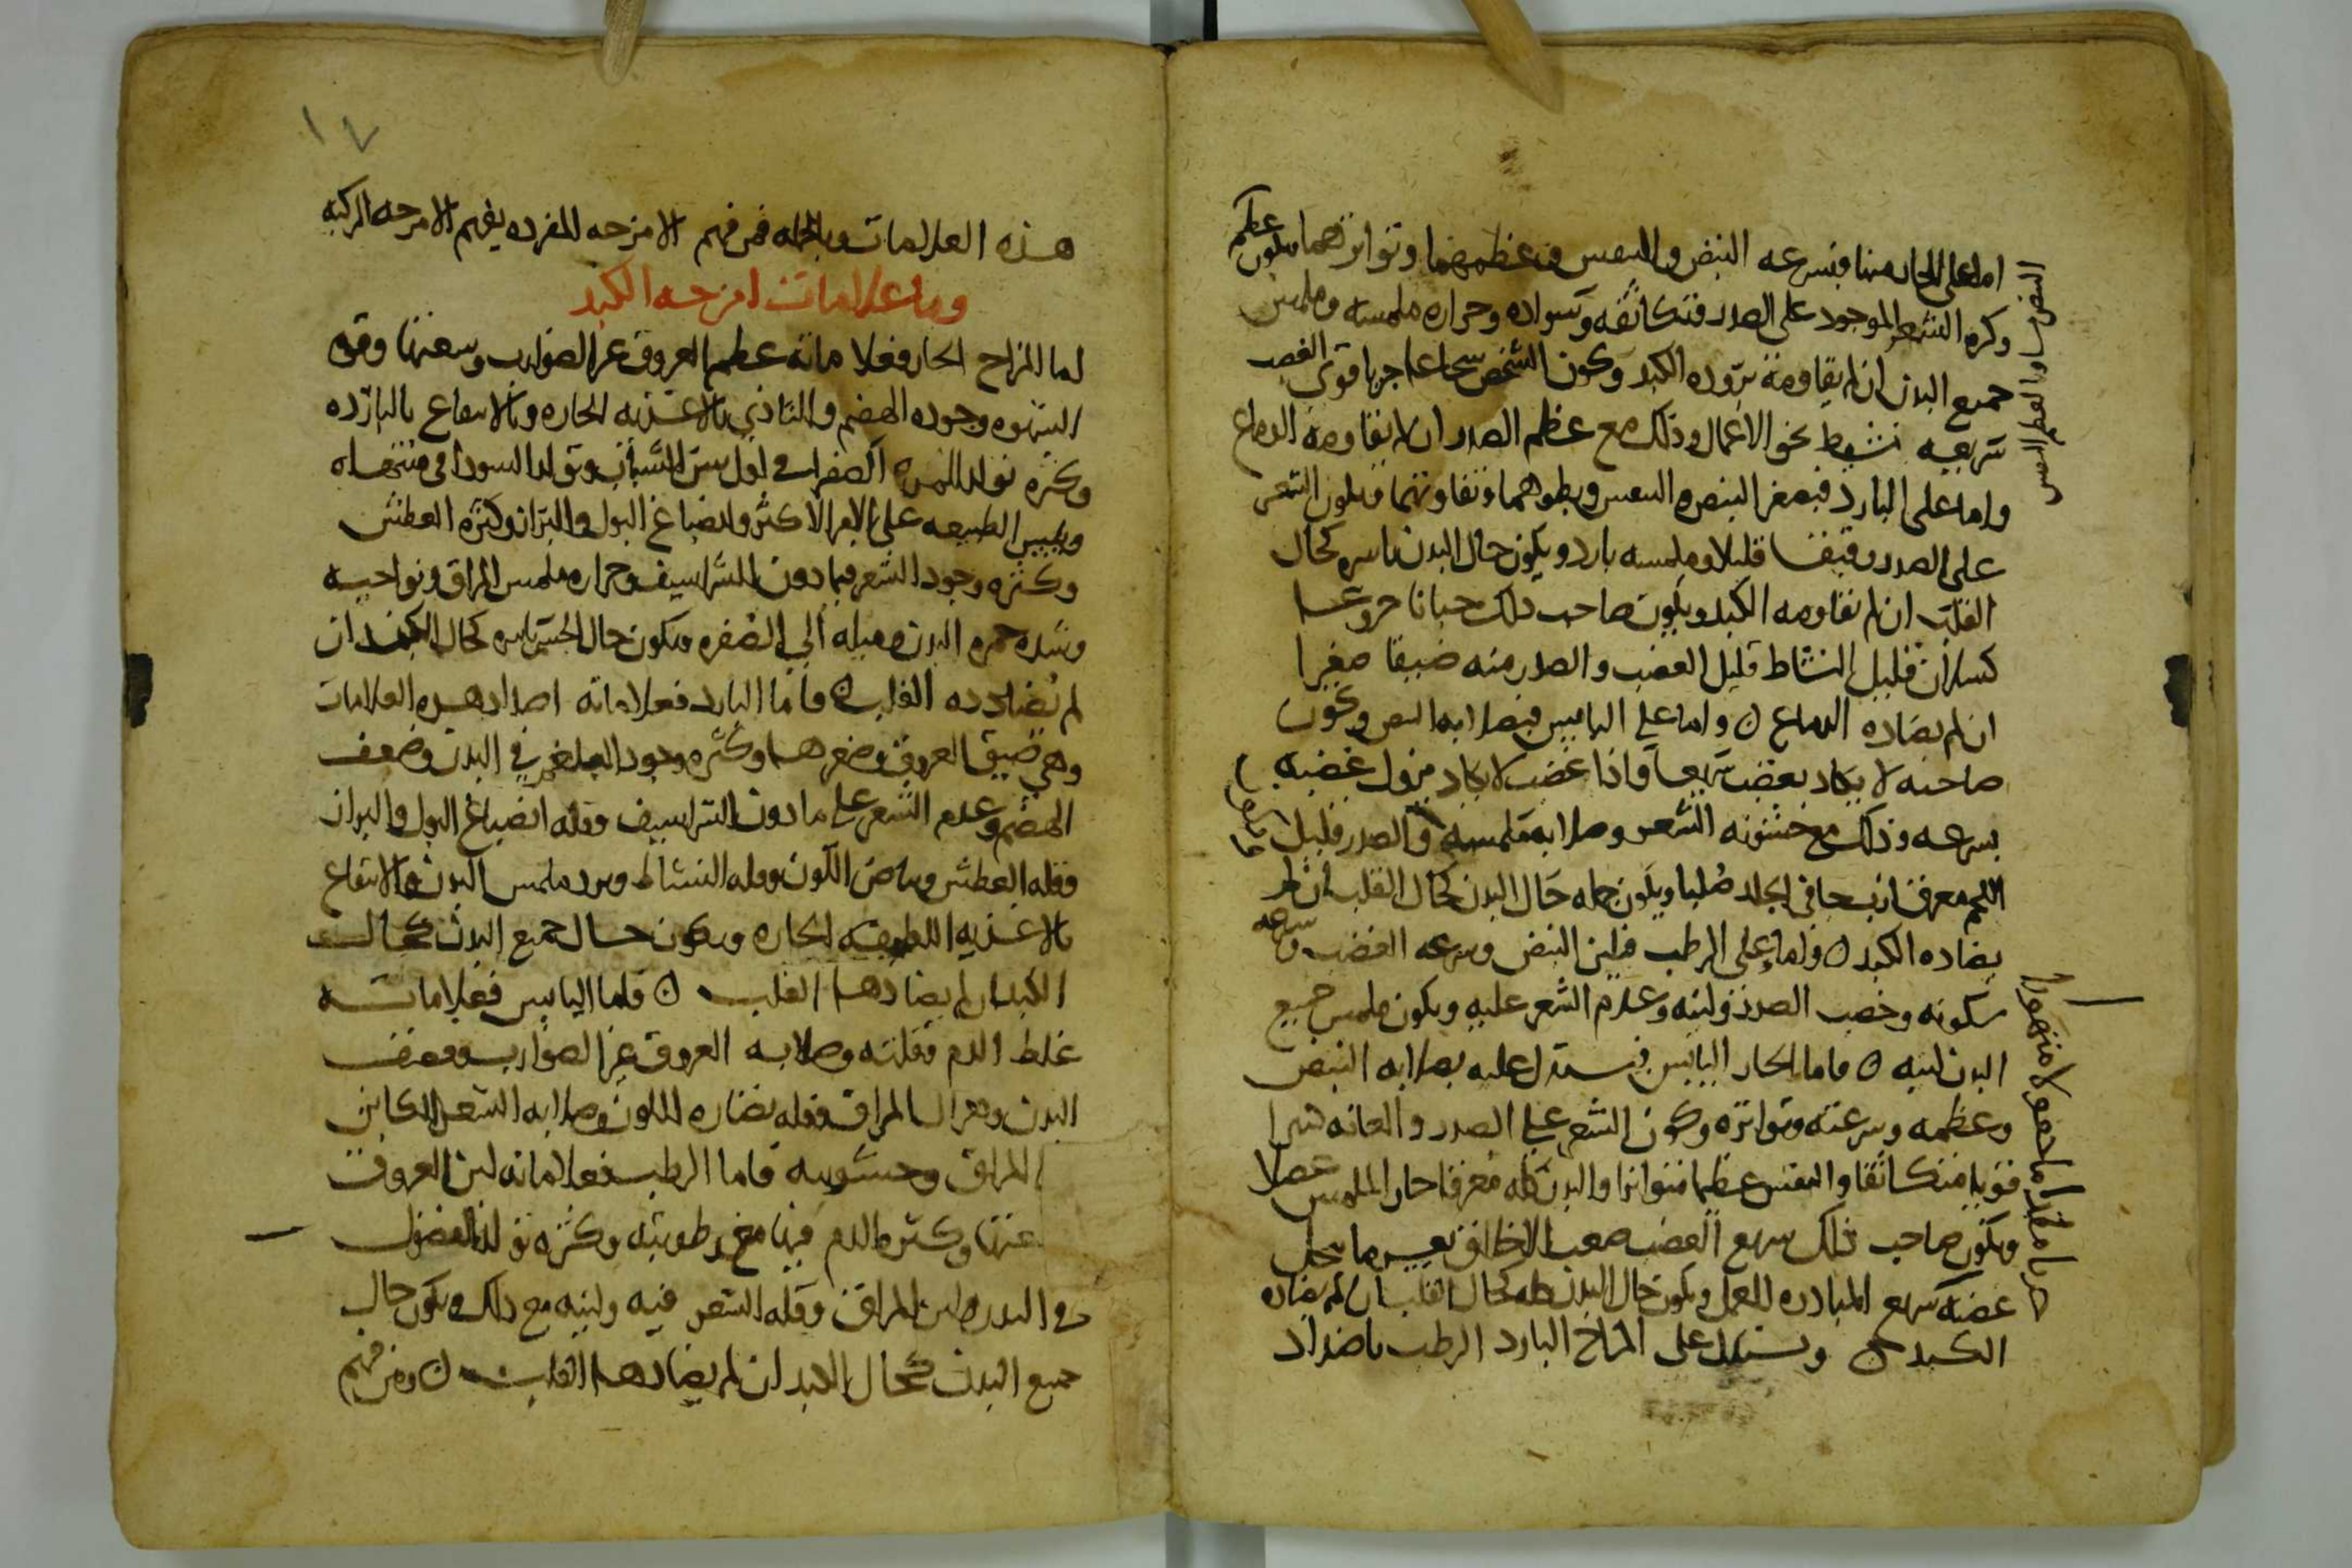 اما على الحار منها فبسرعه النبض والنفس وعظمهما وتواترهما ويكون عظم
وكثره الشعر الموجود على الصدر وتكاثفه وسواده وحراره ملمسه وملمس
جميع البدن ان لم يقاومه بروده الكبد وكون الشخص شجاعا جريا قوى الغضب
سريعه نشيط نحو الاعمال وذلك مع عظم الصدر ان لم يقاومه الدماع
واما على البارد فبصغر النبض والنفس وبطوهما وتفاوتهما ويكون الشعر
على الصدر قليلا وملمسه بارد ويكون حال البدن باسره كحال
القلب ان لم يقاومه الكبد ويكون صاحب ذلك جبانا جزوعا
كسلان قليل النشاط قليل الغضب والصدر منه ضيقا صغيرا
ان لم يضاده الدماع ۝ واما على اليابس فبصلابه النبض وكون
صاحبه لا يكاد يغضب سريعا واذا غضب لا يكاد يزول غضبه
بسرعه وذلك مع خشونه الشعر وصلابه ملمسه والصدر قليل
اللحم معرق الجلد صلبا ويكون جمله حال البدن كحال القلب ان لم
يضاده الكبد ۝ واما على الرطب فلين النبض وسرعه الغضب وسرعه
سكونه وخصب الصدر ولينه وعدم الشعر عليه ويكون ملمس جميع
البدن لينه ۝ فاما الحار اليابس فيستدل عليه بصلابه النبض
وعظمه وسرعته وتواتره وكون الشعر على الصدر والعانه كثيرا
قويا متكاثفا والنفس عظيما متواترا والبدن كله معرقا حار الملمس عضلا
ويكون صاحب ذلك سريع الغضب صعب الاخلاق
غضبه سريع المبادره للعمل ويكون حال البدن كله كحال القلب ان لم يضاده
الكبد ۝ ويستدل على المزاج البارد الرطب باضداد
١٧
هذه العلامات وبالجمله فمن فهم الامزجه المفرده يفهم الامزجه المركبه
وما علامات امزجه الكبد
اما المزاج الحار فعلاماته عظم العروق غير الضوارب وسعتها وقوه
الشهوه وجوده الهضم والتاذي بالاغذيه الحاره والانتفاع بالبارده
وكثره تولد المره الصفرا في اول سن الشباب وتولد السودا في منتهاه
ويبس الطبيعه على الامر الاكثر وانصباغ البول والبراز وكثره العطش
وكثره وجود الشعر فيما دون الشراسيف وحراره ملمس المراق ونواحيه
وشده حمره البدن وميله الى الصفره ويكون حال الجسم باسره كحال الكبد ان
لم تضادده القلب ۝ واما البارد فعلاماته اضداد هذه العلامات
وهي ضيق العروق وصغرها وكثره وجود البلغم في البدن وضعف
الهضم وعدم الشعر على ما دون الشراسيف وقله انصباغ البول والبراز
وقله العطش وبياض اللون وقله النشاط وبرد ملمس البدن والانتفاع
بالاغذيه اللطيفه الحاره ويكون حال جميع البدن كحال
الكبد ان لم يضادها القلب ۝ فاما اليابس فعلاماته
غلظ الدم وقلته وصلابه العروق غير الضوارب وقصف
البدن وهزال المراق وقله نضاره اللون وصلابه الشعر الكاين
المراق وخشونته فاما الرطب فعلاماته لين العروق
وكثره الدم فيها مع رطوبته وكثره تولد الفضول
في البدن ولين المراق وقله الشعر فيه ولينه مع ذلك ويكون حال
جميع البدن كحال الكبد ان لم يضادها القلب ۝ ومن فهم